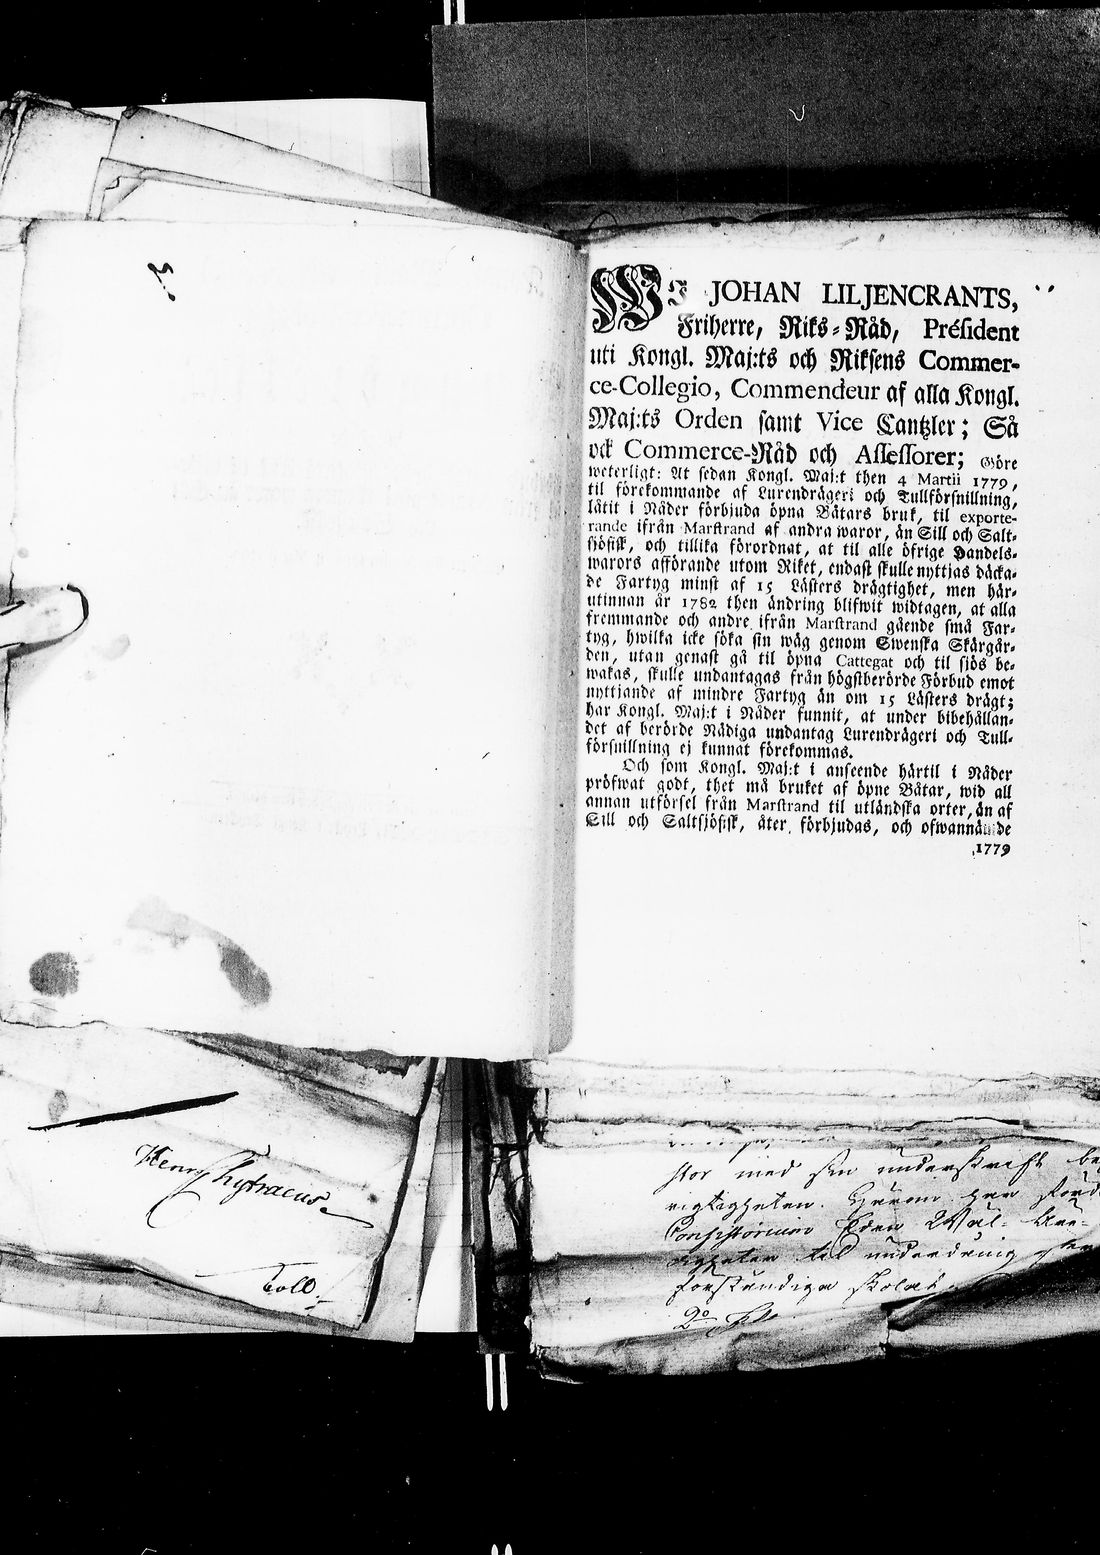 WJ JOHAN LILJENCRANTS,
Friherre, Riks-Råd, Président
uti Kongl. Maj:ts och Riksens Commer-
ce-Collegio, Commendeur af alla Kongl.
Maj:ts Orden samt Vice Cantzler; Så
ock Commerce-Råd och Assessorer; Göre
weterligt: At sedan Kongl. Maj:t then 4 Martii 1779,
til förekommande af Lurendrägeri och Tullförsnillning,
låtit i Nåder förbjuda öpna Båtars bruk, til exporte-
rande ifrån Marstrand af andra waror, än Sill och Salt-
sjöfisk, och tillika förordnat, at til alle öfrige Handels-
warors afförande utom Riket, endast skulle nyttjas däcka-
de Fartyg minst af 15 Lästers drägtighet, men här-
utinnan år 1782 then ändring blifwit widtagen, at alla
fremmande och andre ifrån Marstrand gående små Far-
tyg, hwilka icke söka sin wäg genom Swenska Skärgår-
den, utan genast gå til öpna Cattegat och til sjös be-
wakas, skulle undantagas från högstberörde Förbud emot
nyttjande af mindre Fartyg än om 15 Lästers drägt;
har Kongl. Maj:t i Nåder funnit, at under bibehållan-
det af berörde Nådiga undantag Lurendrägeri och Tull-
försnillning ej kunnat förekommas.
Och som Kongl. Maj:t i anseende härtil i Nåder
pröfwat godt, thet må bruket af öpne Båtar, wid all
annan utförsel från Marstrand til utländska orter, än af
Sill och Saltsjöfisk, åter förbjudas, och ofwannämde
1779
Henr Chytraeus
Toll
med sin underskrift
rigtigheten.
Consistorium
til underdånig
förständiga
2o